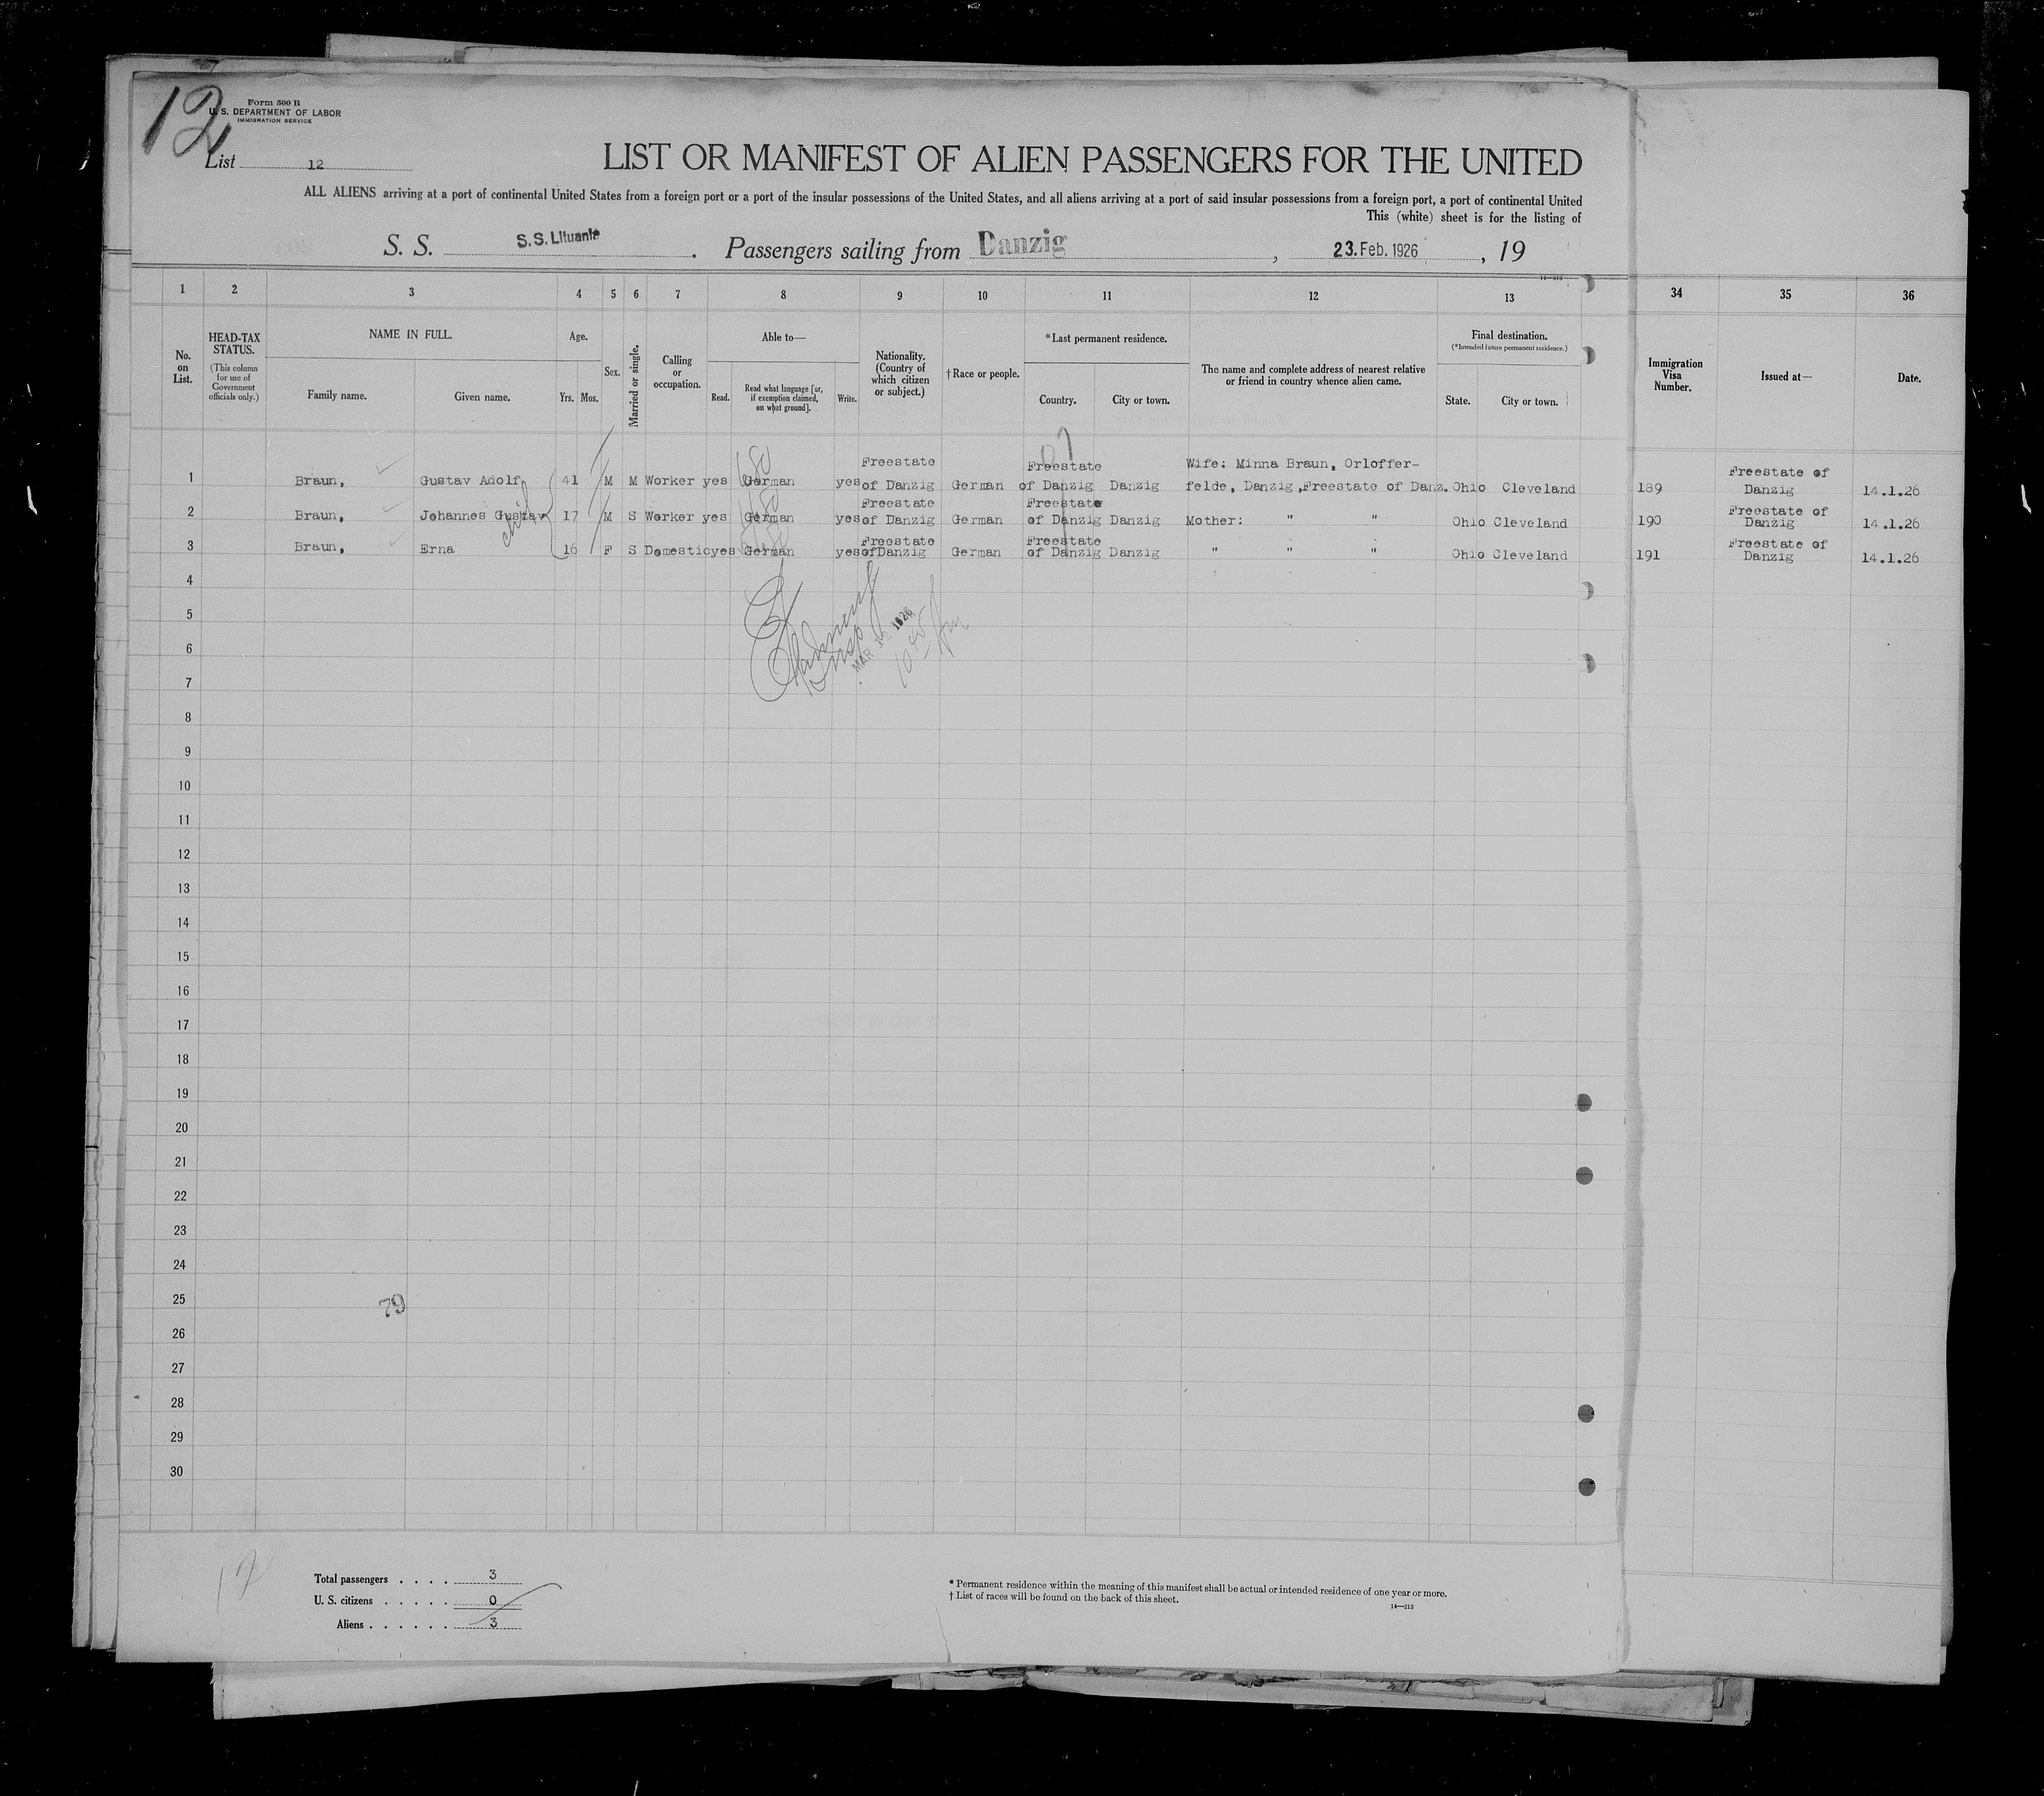 12
Form 500 B
U. S. DEPARTMENT OF LABOR
IMMIGRATION SERVICE
List 12
LIST OR MANIFEST OF ALIEN PASSENGERS FOR THE UNITED
ALL ALIENS arriving at a port of continental United States from a foreign port or a port of the insular possessions of the United States, and all aliens arriving at a port of said insular possessions from a foreign port, a port of continental United
This (white) sheet is for the listing of
S. S. S.S. Lituania . Passengers sailing from Danzig , 23. Feb. 1926 , 19
14—213
1 2 3 4 5 6 7 8 9 10 11 12 13 34 35 36
No. on List.
HEAD-TAX STATUS.
(This column for use of Government officials only.)
NAME IN FULL.
Family name. Given name.
Age.
Yrs. Mos.
Sex.
Married or single.
Calling or occupation.
Able to—
Read. Read what language [or, if exemption claimed, on what ground]. Write.
Nationality. (Country of which citizen or subject.)
†Race or people.
*Last permanent residence.
Country. City or town.
The name and complete address of nearest relative or friend in country whence alien came.
Final destination.
(*Intended future permanent residence.)
State. City or town.
Immigration Visa Number.
Issued at—
Date.
1 Braun, Gustav Adolf 41 M M Worker yes German yes Freestate of Danzig German Freestate of Danzig Danzig Wife: Minna Braun, Orloffer-
felde, Danzig, Freestate of Danz. Ohio Cleveland 189 Freestate of Danzig 14.1.26
2 Braun, Johannes Gustav 17 M S Worker yes German yes Freestate of Danzig German Freestate of Danzig Danzig Mother: " " Ohio Cleveland 190 Freestate of Danzig 14.1.26
3 Braun, Erna 16 F S Domestic yes German yes Freestate of Danzig German Freestate of Danzig Danzig " " " Ohio Cleveland 191 Freestate of Danzig 14.1.26
4
5
6
MAR 1926
7
8
9
10
11
12
13
14
15
16
17
18
19
20
21
22
23
24
25
79
26
27
28
29
30
12
Total passengers . . . . 3
U. S. citizens . . . . . 0
Aliens . . . . . . 3
* Permanent residence within the meaning of this manifest shall be actual or intended residence of one year or more.
† List of races will be found on the back of this sheet.
14—213